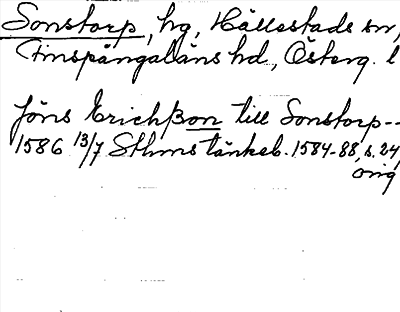 Sonstorp, hg, Hällestads sn,
Finspångaläns hd., Österg. l
Jöns Erichßon till Sonstorp--
1586 13/7 Sthms tänkeb. 1584-88, s. 24,
orig